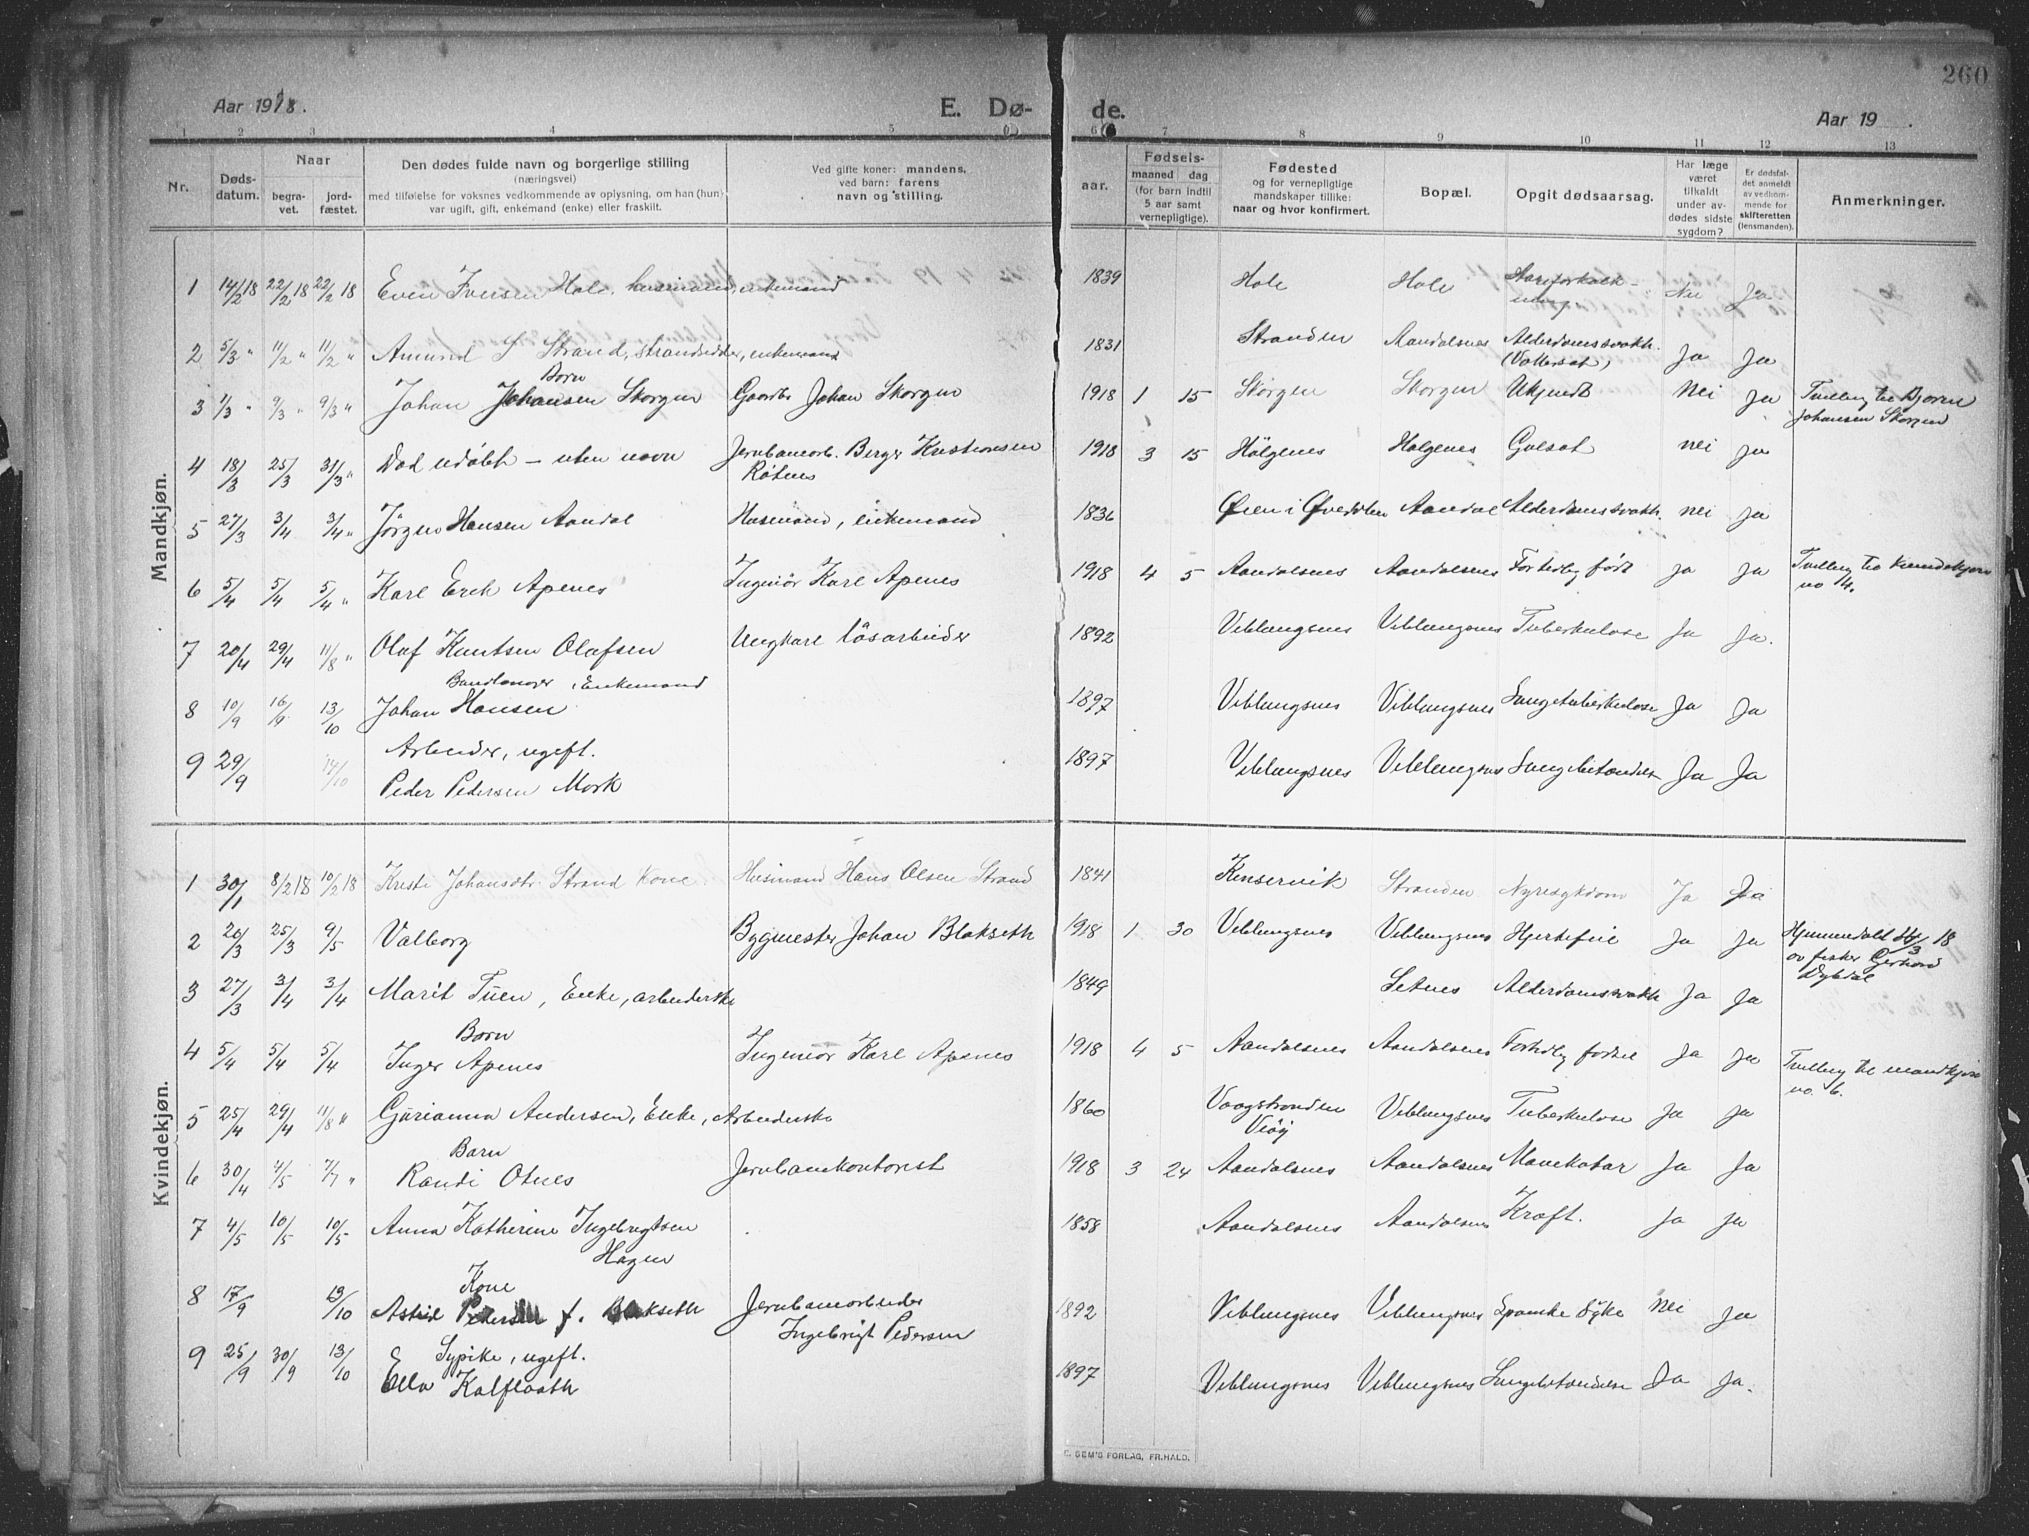 260
Aar 1918.
E. Dø-
de.
Aar 19 .
1 2 3 4 5 6 7 8 9 10 11 12 13
Nr.
Døds-
datum.
Naar
begra-
vet.
jord-
fæstet.
Den dødes fulde navn og borgerlige stilling
(næringsvei)
med tilføielse for voksnes vedkommende av oplysning, om han (hun)
var ugift, gift, enkemand (enke) eller fraskilt.
Ved gifte koner: mandens,
ved barn: farens
navn og stilling.
aar.
Fødsels-
maaned dag
(for barn indtil
5 aar samt
vernepligtige).
Fødested
og for vernepligtige
mandskaper tillike:
naar og hvor konfirmert.
Bopæl.
Opgit dødsaarsag.
Har læge
været
tilkaldt
under av-
dødes sidste
sygdom?
Er dødsfal-
det anmeldt
av vedkom-
mende for
skifteretten
(lensmanden).
Anmerkninger.
Mandkjøn.
1 14/2 18 22/2 18 22/2 18 Even Iversen Hole, husmand, enkemand 1839 Hole Hole Aareforkalk-
ning Nei Ja
2 5/3 " 11/2 " 11/2 " Amund S Strand, strandsidder, enkemand 1831 Stranden Aandalsnes Alderdomssvakh.
Ja Ja
Barn
3 1/3 " 9/3 " 9/3 " Johan Johansen Skorgen Gaardbr Johan Skorgen 1918 1 15 Skorgen Skorgen Ukjendt Nei Ja Tvilling til Bjarne
Johansen Skorgen
4 18/3 25/3 31/3 " Død udøbt – uten navn Jernbanearb. Berger Kristiansen
Røtnes 1918 3 15 Hølgenes Holgenes Gulsot nei ja
5 27/3 3/4 3/4 " Jørgen Hansen Aandal Husmand, enkemand 1836 Øien i Øverdalen Aandal Alderdomssvakh. nei ja
6 5/4 5/4 5/4 " Karl Erik Apenes Ingeniør Karl Apenes 1918 4 5 Aandalsnes Aandalsnes Fortidlig født ja ja Tvilling til kvindekjøn
no 4.
7 20/4 29/4 11/8 " Olaf Knutsen Olafsen Ungkarl løsarbeider 1892 Veblungsnes Veblungsnes Tuberkulose Ja Ja.
Enkemand
8 10/9 16/9 13/10 Johan Hansen 1897 Veblungsnes Veblungsnes Lungetuberkulose Ja Ja
Arbeider, ugift.
9 29/9 14/10 Peder Pedersen Mork 1897 Veblungsnes Veblungsnes Lungebetændelse Ja Ja
Kvindekjøn.
1 30/1 8/2 18 10/2 18 Kristi Johansdtr. Strand Kone Husmand Hans Olsen Strand 1841 Kinservik Stranden Nyresygdom Ja Ja
2 20/3 25/3 9/5 Valborg Bygmester Johan Blakseth 1918 1 30 Veblungsnes Veblungsnes Hjertefeil Ja Ja Hjemmedøbt 18
av fisker Gerhard
Dybdal
3 27/3 3/4 3/4 Marit Tuen, Enke, arbeiderske 1849 Setnes Alderdomssvakh Ja Ja
Barn
4 5/4 5/4 5/4 Inger Apenes Ingeniør Karl Apenes 1918 4 5 Aandalsnes Aandalsnes Fortidlig fødsel Ja ja Tvilling til mandkjøn
no. 6.
5 25/4 29/4 11/8 " Gurianna Andersen, Enke, Arbeiderske 1860 Vaagstranden
Veøy Veblungsnes Tuberkulose Ja Ja
Barn
6 30/4 4/5 7/7 " Randi Otnes Jernbanekontorist 1918 3 24 Aandalsnes Aandalsnes Mavekatar Ja Ja
7 4/5 10/5 10/5 Anna Katherine Ingebrigtsen
Hagen 1858 Aandalsnes Aandalsnes Kræft. Ja ja
Kone
8 17/9 13/10 Astrid Pedersen f. Blakseth Jernbanearbeider
Ingebrigt Pedersen 1892 Veblungsnes Veblungsnes Spanske Syke Nei Ja
Sypike, ugift.
9 25/9 30/9 13/10 Ella Kalfloath 1897 Veblungsnes Veblungsnes Lungebetændelse Ja Ja.
E. SEM'S FORLAG, FR.HALD.